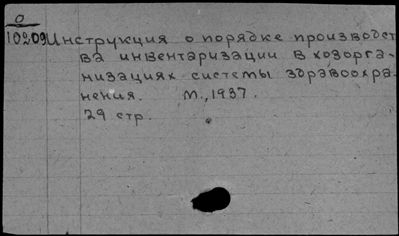 0
10209 Инструкция о порядке производст
ва инвентаризации в хозорга-
низациях системы здравоохра-
нения. М., 1937.
29 стр.